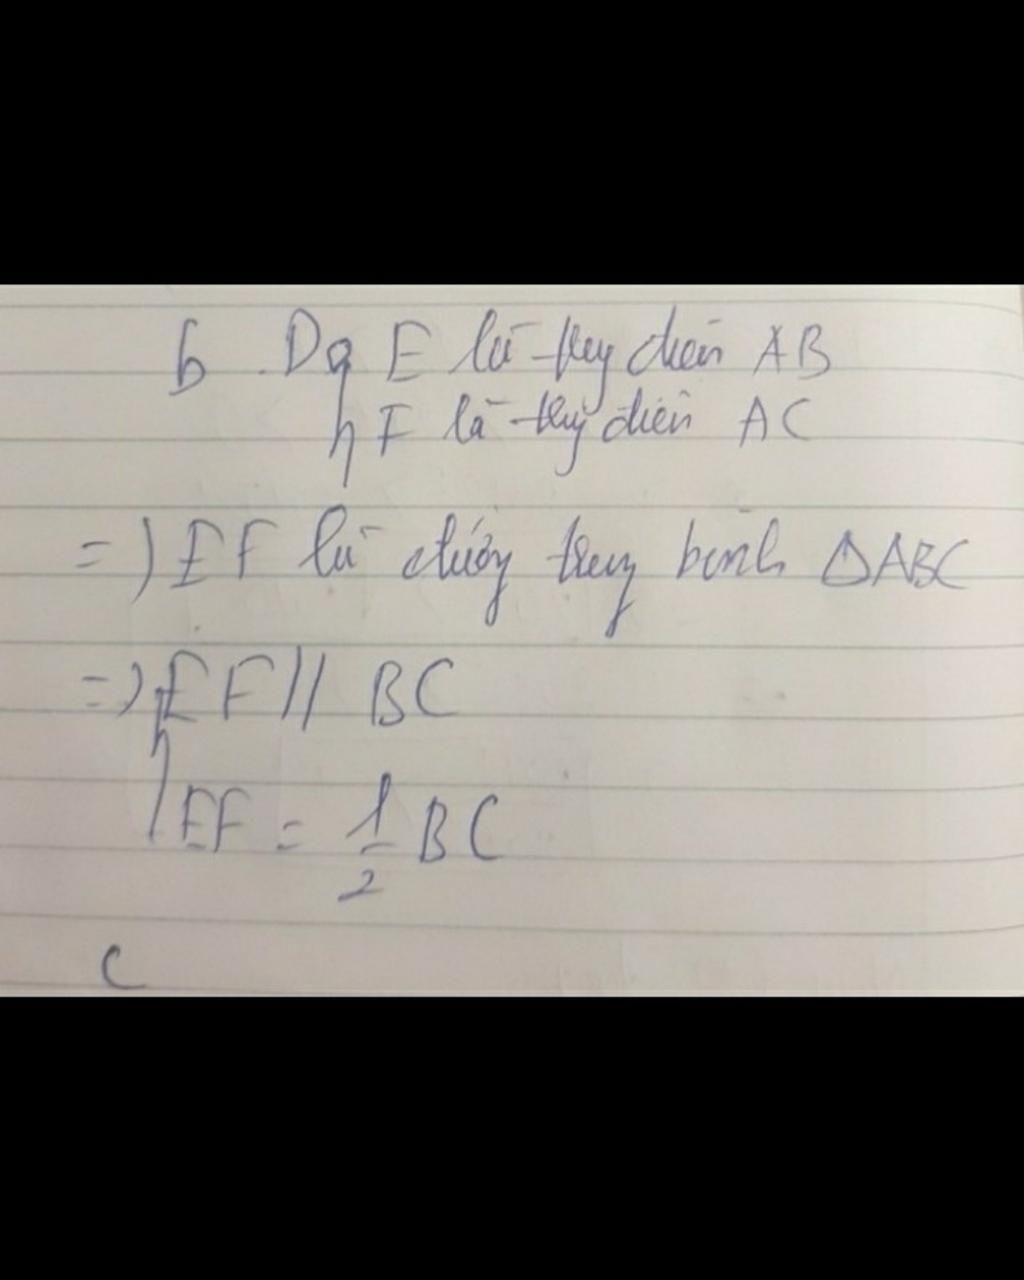 b. Do { E là trung điểm AB
F là trung điểm AC
=) EF là đường trung bình ΔABC
=) { EF // BC
EF = 1/2 BC
C